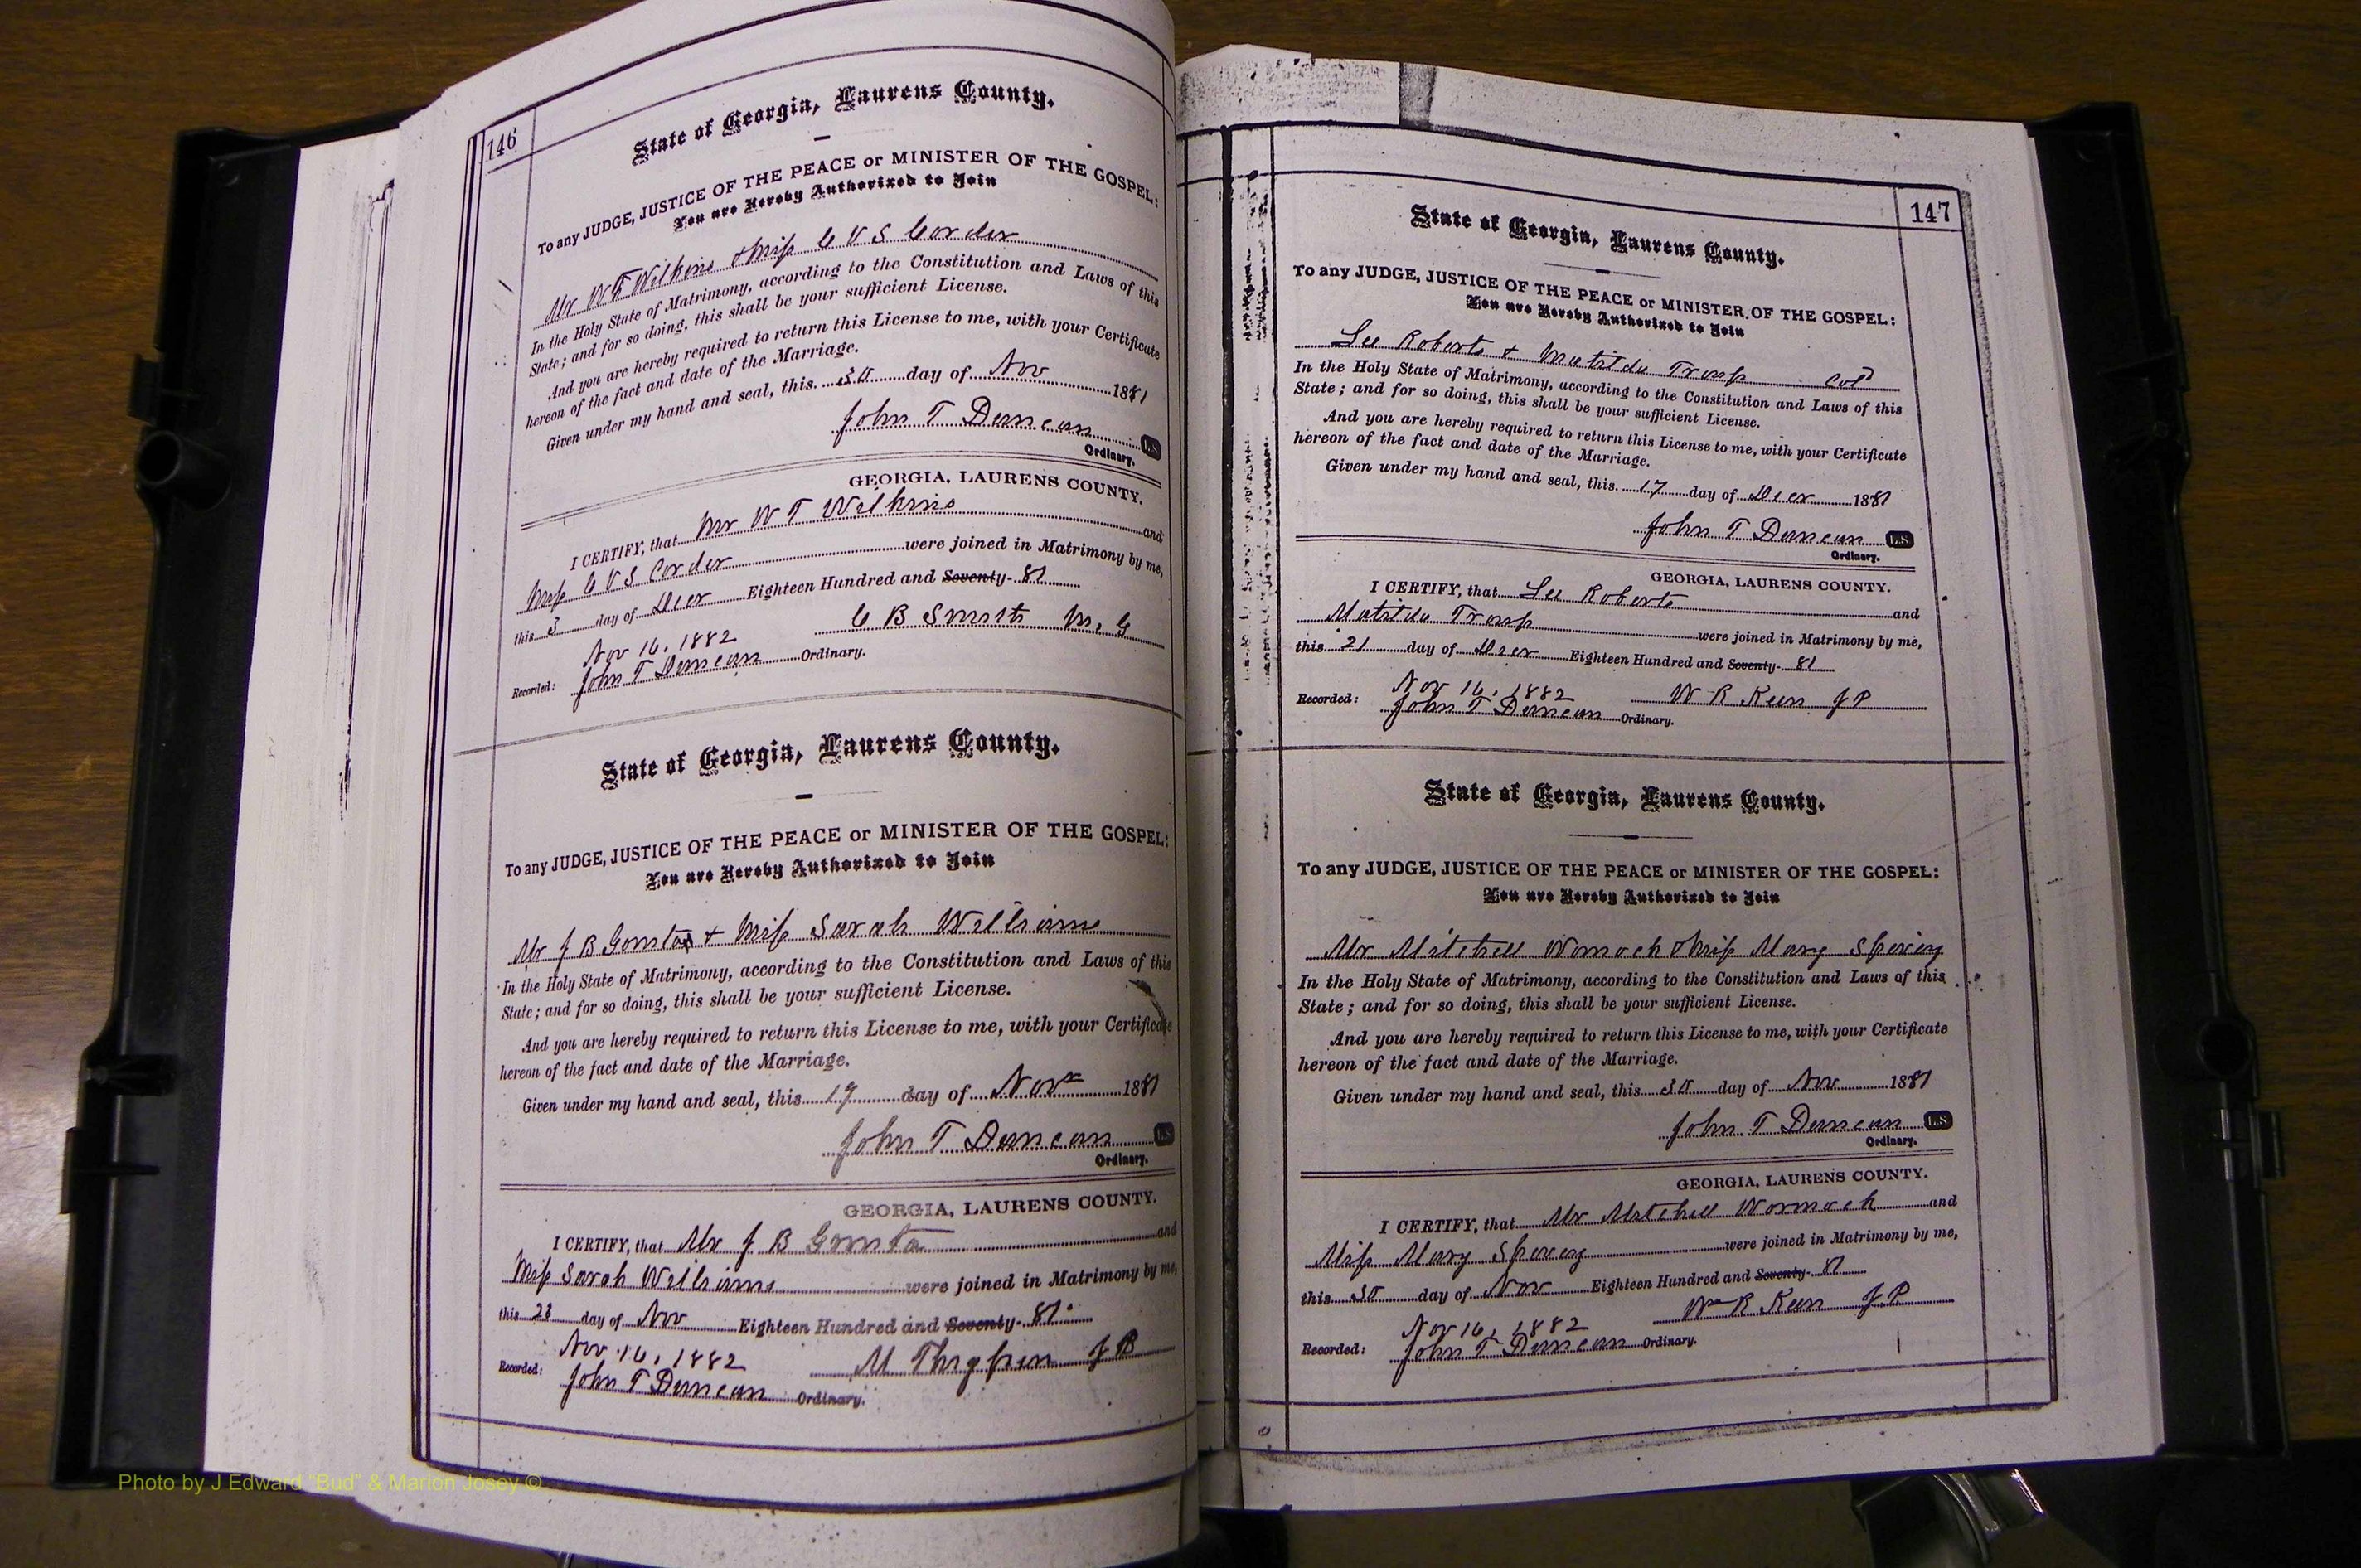 146
State of Georgia, Laurens County.
To any JUDGE, JUSTICE OF THE PEACE or MINISTER OF THE GOSPEL:
You are Hereby Authorized to Join
Mr W T Wilkins & Miss C V S Corder
In the Holy State of Matrimony, according to the Constitution and Laws of this
State; and for so doing, this shall be your sufficient License.
And you are hereby required to return this License to me, with your Certificate
hereon of the fact and date of the Marriage.
Given under my hand and seal, this 30 day of Nov 1881
John T Duncan L.S.
Ordinary.
GEORGIA, LAURENS COUNTY.
I CERTIFY, that Mr W T Wilkins and
Miss C V S Corder were joined in Matrimony by me,
this 3 day of Decr Eighteen Hundred and Seventy- 81
C B Smith M. G
Nov 16, 1882
Recorded: John T Duncan Ordinary.
State of Georgia, Laurens County.
To any JUDGE, JUSTICE OF THE PEACE or MINISTER OF THE GOSPEL:
You are Hereby Authorized to Join
Mr J B & Miss Sarah Williams
In the Holy State of Matrimony, according to the Constitution and Laws of this
State; and for so doing, this shall be your sufficient License.
And you are hereby required to return this License to me, with your Certificate
hereon of the fact and date of the Marriage.
Given under my hand and seal, this 19 day of Novr 1881
John T Duncan L.S.
Ordinary.
GEORGIA, LAURENS COUNTY.
I CERTIFY, that Mr J B and
Miss Sarah Williams were joined in Matrimony by me,
this 23 day of Nov Eighteen Hundred and Seventy- 81
M Thigpen J P
Nov 16, 1882
Recorded: John T Duncan Ordinary.
147
State of Georgia, Laurens County.
To any JUDGE, JUSTICE OF THE PEACE or MINISTER OF THE GOSPEL:
You are Hereby Authorized to Join
Lee Roberts & Matilda Troup Cold
In the Holy State of Matrimony, according to the Constitution and Laws of this
State; and for so doing, this shall be your sufficient License.
And you are hereby required to return this License to me, with your Certificate
hereon of the fact and date of the Marriage.
Given under my hand and seal, this 17 day of Decr 1881
John T Duncan L.S.
Ordinary.
GEORGIA, LAURENS COUNTY.
I CERTIFY, that Lee Roberts and
Matilda Troup were joined in Matrimony by me,
this 21 day of Decr Eighteen Hundred and Seventy- 81
W R Keen J P
Nov 16, 1882
Recorded: John T Duncan Ordinary.
State of Georgia, Laurens County.
To any JUDGE, JUSTICE OF THE PEACE or MINISTER OF THE GOSPEL:
You are Hereby Authorized to Join
Mr Mitchell Womack & Miss Mary Spivey
In the Holy State of Matrimony, according to the Constitution and Laws of this
State; and for so doing, this shall be your sufficient License.
And you are hereby required to return this License to me, with your Certificate
hereon of the fact and date of the Marriage.
Given under my hand and seal, this 30 day of Nov 1881
John T Duncan L.S.
Ordinary.
GEORGIA, LAURENS COUNTY.
I CERTIFY, that Mr Mitchell Wormack and
Miss Mary Spivey were joined in Matrimony by me,
this 30 day of Nov Eighteen Hundred and Seventy- 81
Wm R Keen J P
Nov 16, 1882
Recorded: John T Duncan Ordinary.
Photo by J Edward "Bud" & Marion Josey ©